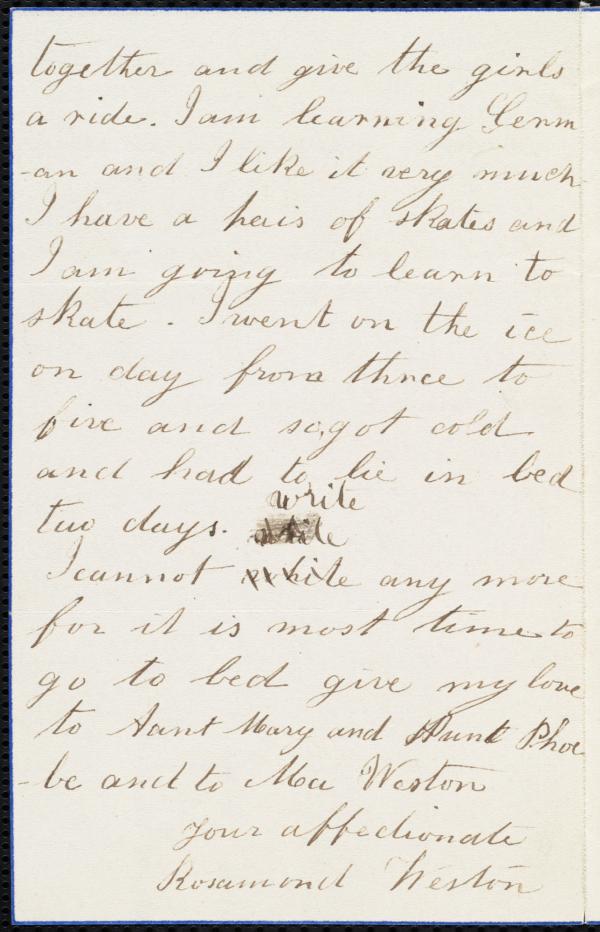 together and give the girls
a ride. I am learning Germ
-an and I like it very much
I have a pair of skates and
I am going to learn to
skate. I went on the ice
on day from three to
five and so got cold
and had to lie in bed
write
two days. while
I cannot while any more
for it is most time to
go to bed give my love
to Aunt Mary and Aunt Phoe
-be and to Ma Weston
your affectionate
Rosamond Weston